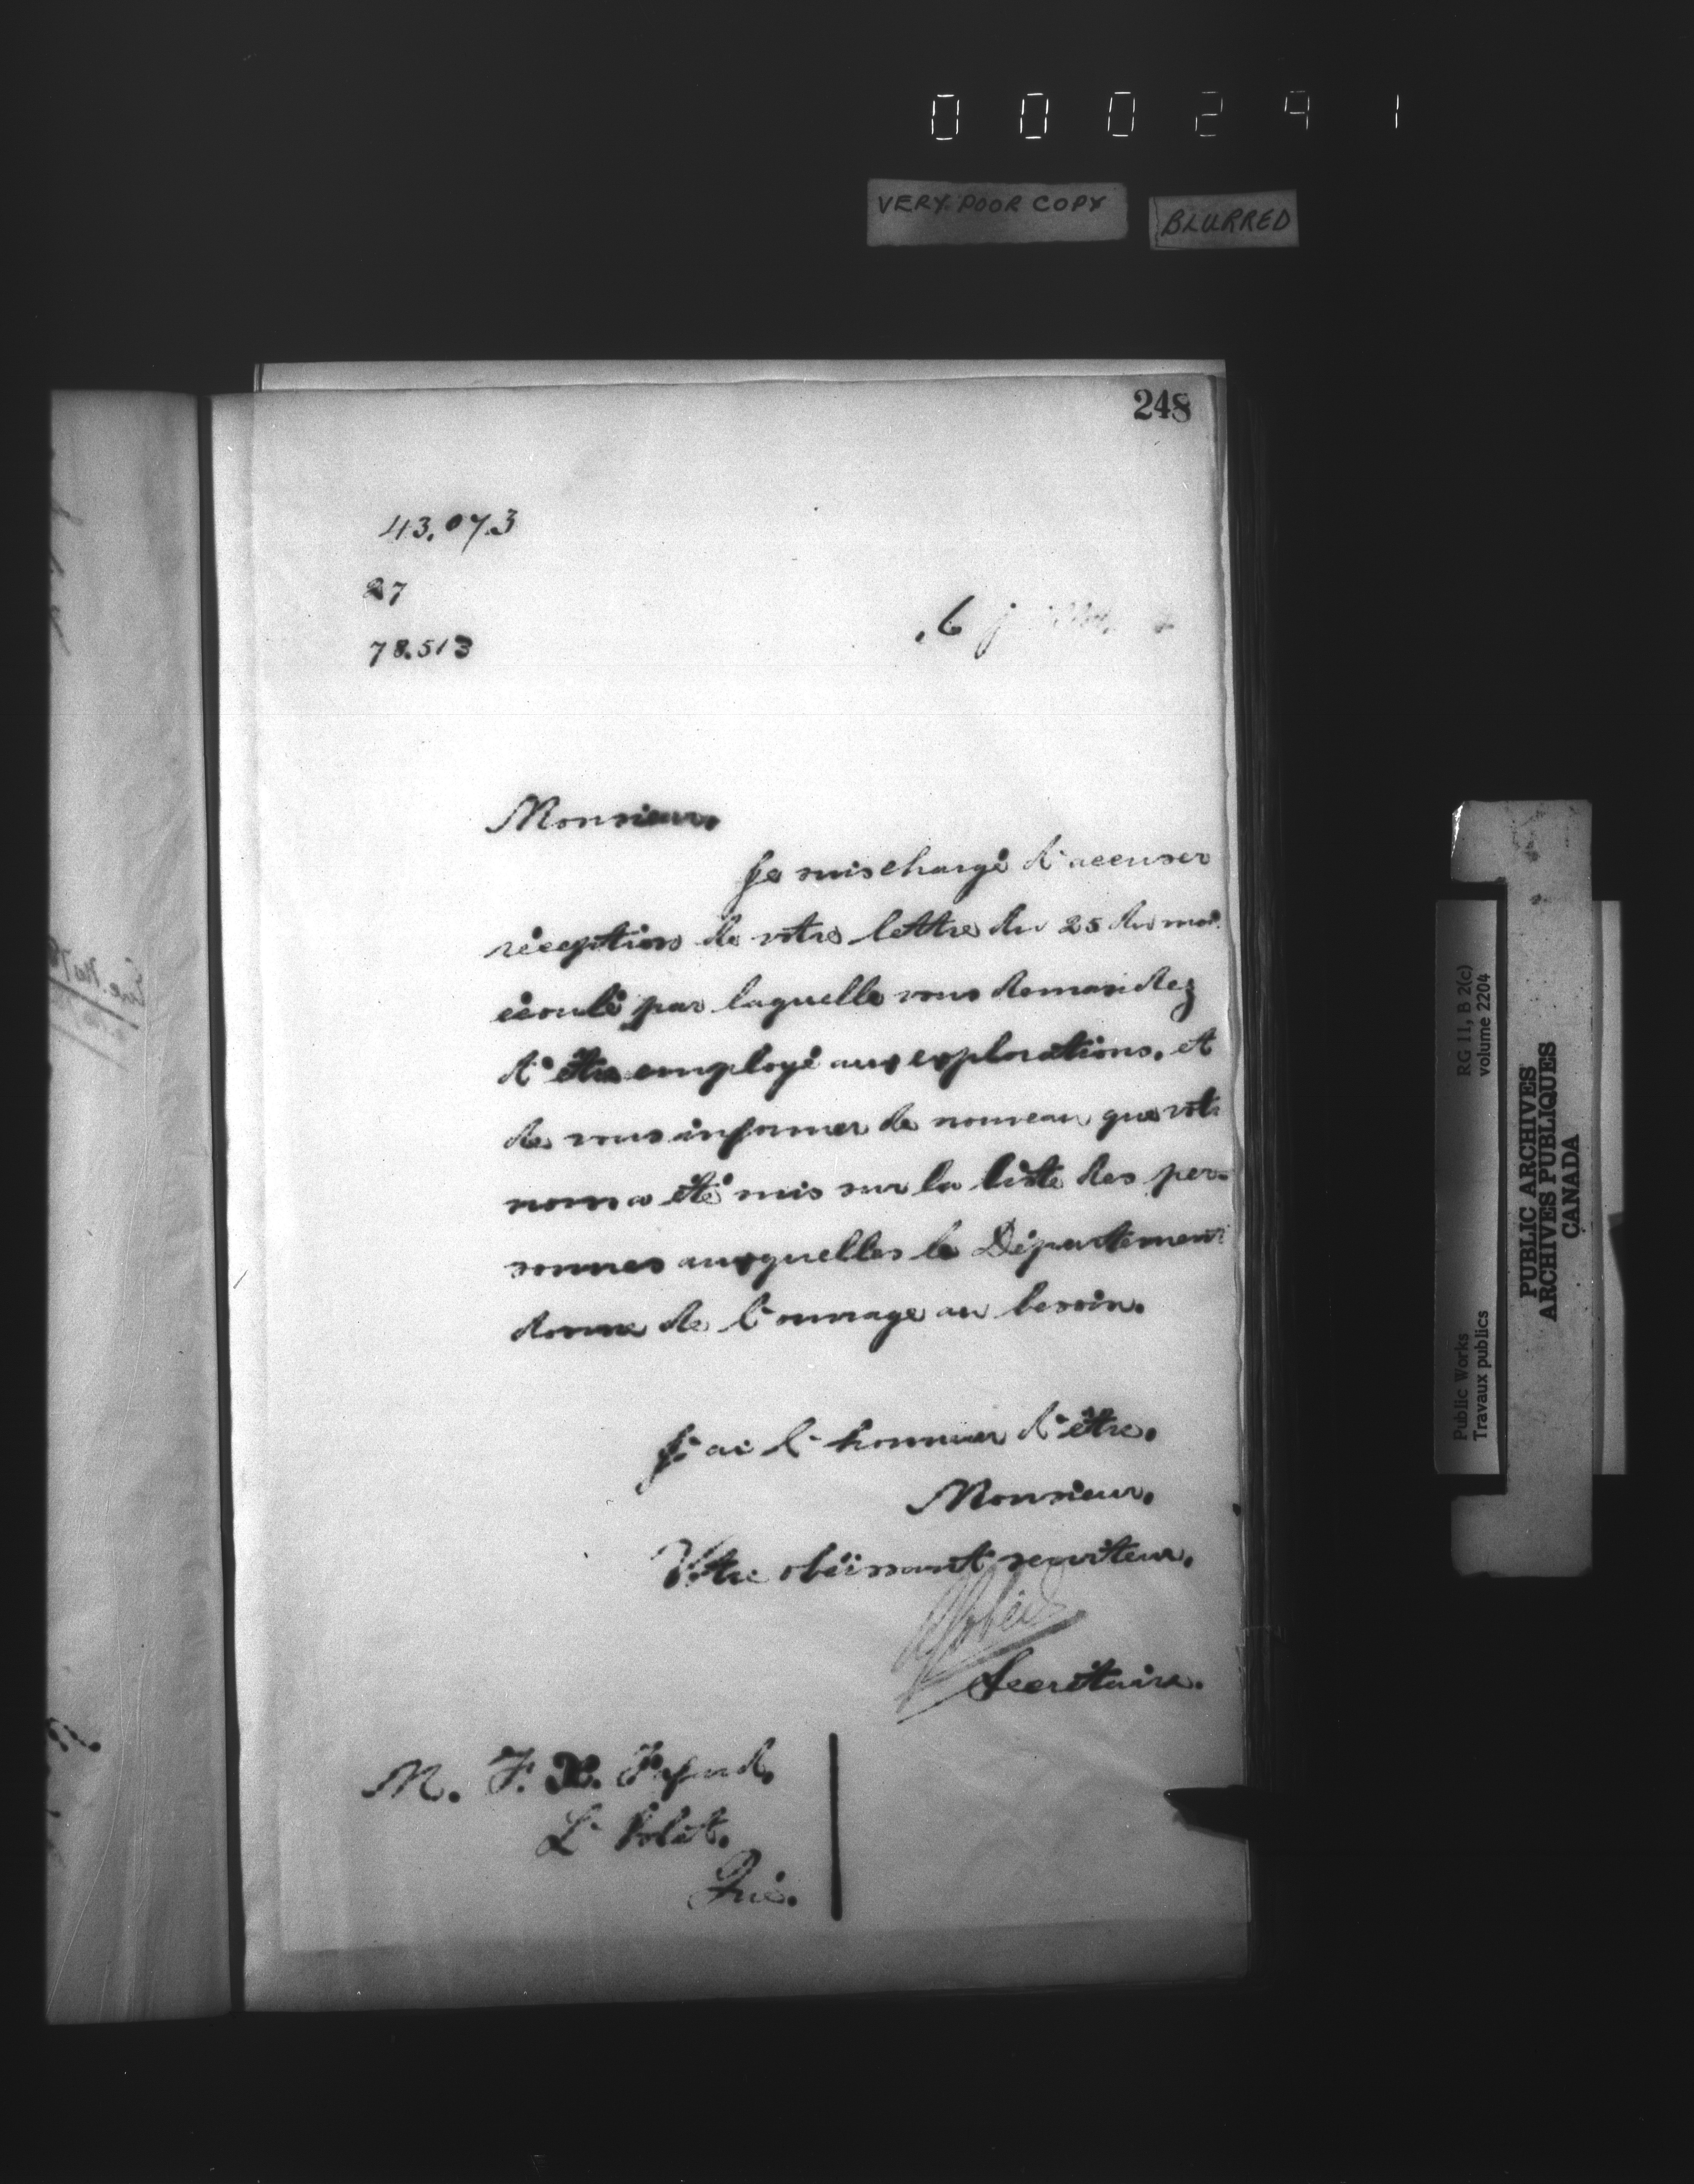 000291
VERY POOR COPY
BLURRED
248
43.073
27
78.513
6
Monsieur,
Je suis chargé d'accuser
réception de votre lettre du 25 du mois
écoulé par laquelle vous demandez
d'être employé aux explorations, et
de vous informer de nouveau que votr
nom a été mis sur la liste des per-
sonnes auxquelles le Département
donne de l'ouvrage au besoin.
J'ai l'honneur d'être,
Monsieur,
Votre obéissant serviteur,
Secrétaire.
M. F. X. Fafard,
L'Islet,
Qué.
Public Works
Travaux publics
RG 11, B 2(c)
volume 2204
PUBLIC ARCHIVES
ARCHIVES PUBLIQUES
CANADA